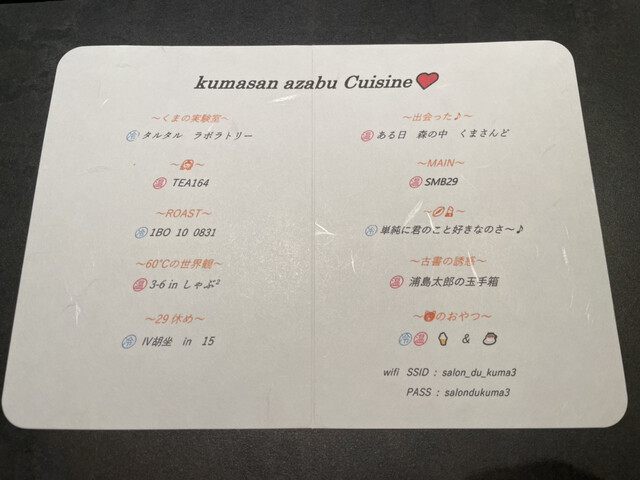 kumasan azabu Cuisine
～くまの実験室～
冷 タルタル ラボラトリー
温 TEA164
～ROAST～
冷 1BO 10 0831
～60℃の世界観～
温 3-6 in しゃぶ²
～29 休め～
冷 Ⅳ胡坐 in 15
～出会った♪～
温 ある日 森の中 くまさんど
～MAIN～
温 SMB29
冷 単純に君のこと好きなのさ～♪
～古書の誘惑～
温 浦島太郎の玉手箱
～のおやつ～
冷 温 &
wifi SSID : salon_du_kuma3
PASS : salondukuma3